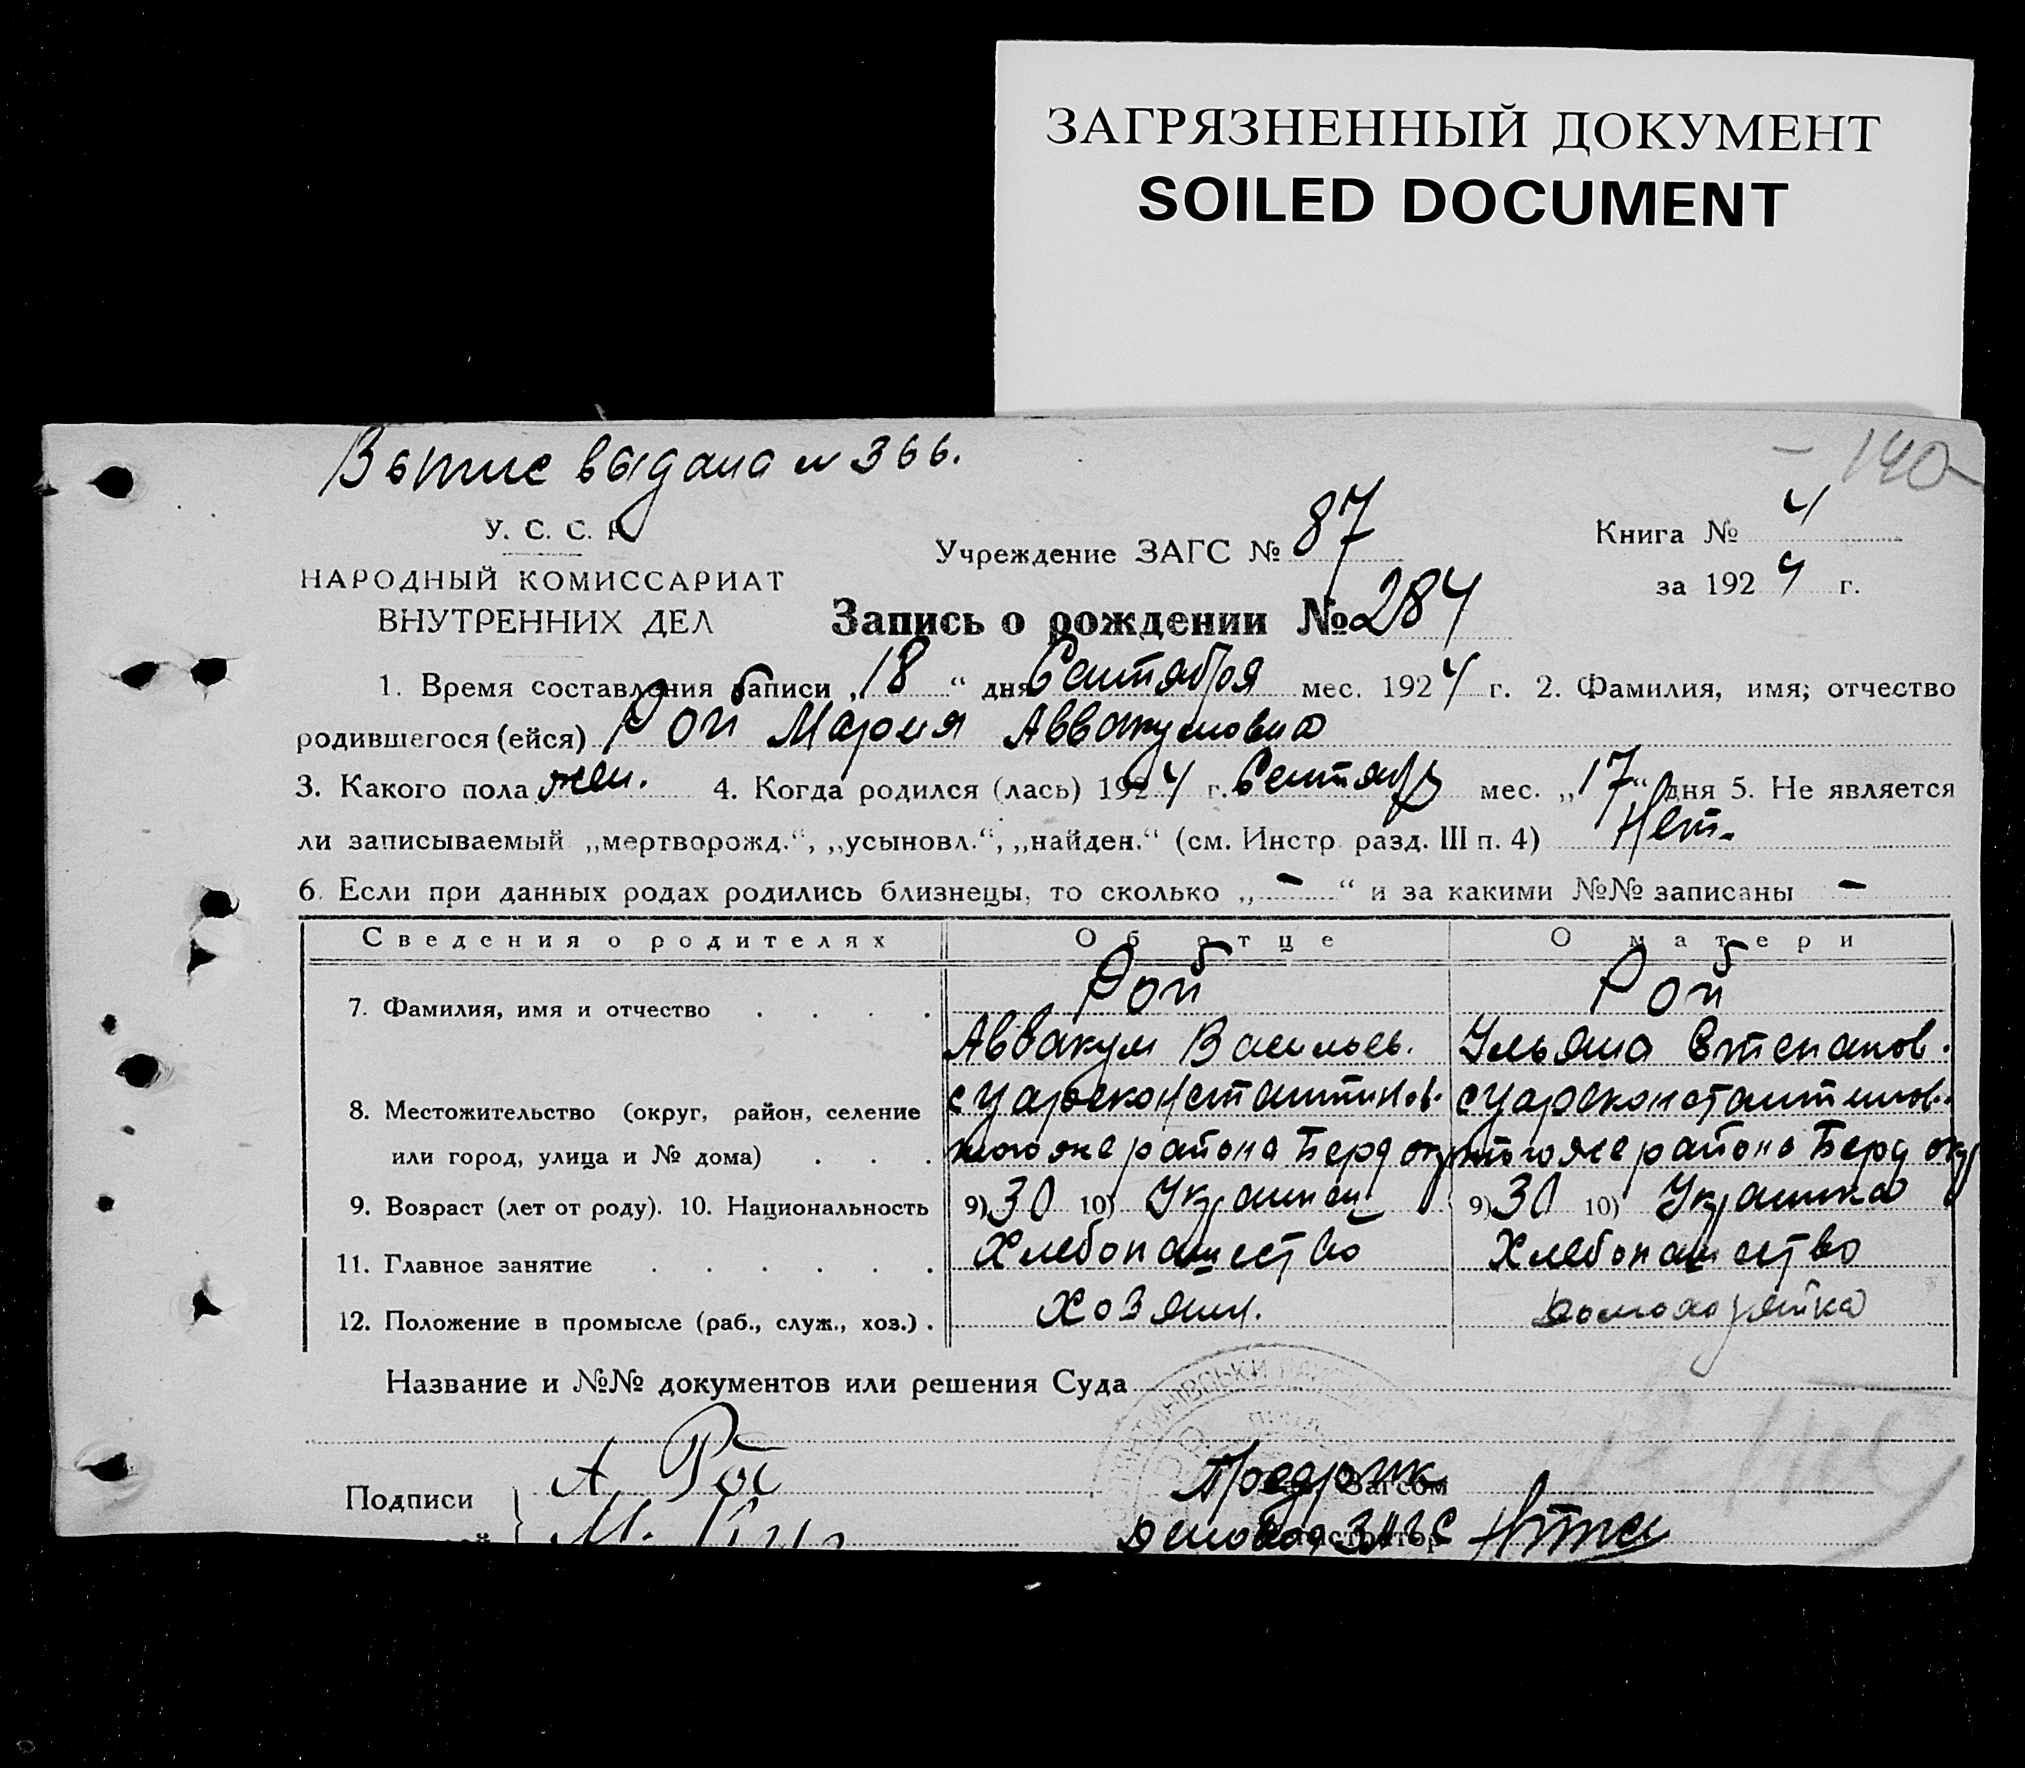 ЗАГРЯЗНЕННЫЙ ДОКУМЕНТ
SOILED DOCUMENT
выдана № 366.
140
У. С. С. Р.
НАРОДНЫЙ КОМИССАРИАТ
ВНУТРЕННИХ ДЕЛ
Учреждение ЗАГС № 87
Книга № 4
за 1924 г.
Запись о рождении № 284
1. Время составления записи „18“ дня Сентября мес. 1924 г. 2. Фамилия, имя; отчество
родившегося (ейся) Рой Мария Аввакумовна
3. Какого пола жен. 4. Когда родился (лась) 1924 г. Сентябр мес. „17“ дня 5. Не является
ли записываемый „мертворожд.“, „усыновл.“, „найден.“ (см. Инстр. разд. III п. 4) Нет.
6. Если при данных родах родились близнецы, то сколько „-“ и за какими №№ записаны -
Сведения о родителях Об отце О матери
7. Фамилия, имя и отчество Рой Рой
Аввакум Васильев. Ульяна Степанов.
8. Местожительство (округ, район, селение с Царьеконстантинов. с Цареконстантинов.
или город, улица и № дома) того же района Берд окр того же района Берд окр
9. Возраст (лет от роду). 10. Национальность 9) 30 10) Украинец 9) 30 10) Украинка
11. Главное занятие Хлебопашество Хлебопашество
12. Положение в промысле (раб., служ., хоз.) Хозяин. Домохозяйка
Название и №№ документов или решения Суда
Подписи А Рой Загсом
М. ЗАГС